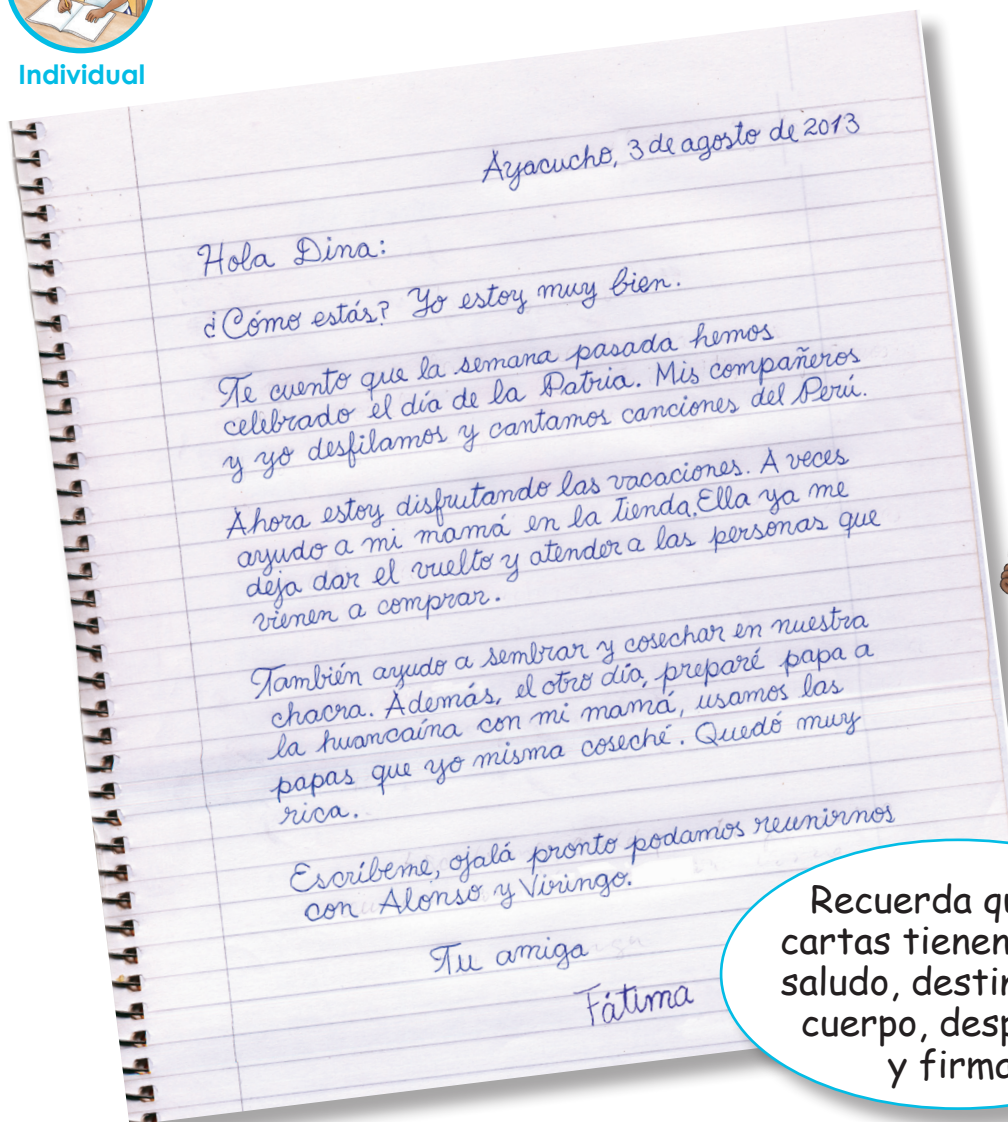 Individual
Ayacucho, 3 de agosto de 2013
Hola Dina:
¿Cómo estás? Yo estoy muy bien.
Te cuento que la semana pasada hemos
celebrado el día de la Patria. Mis compañeros
y yo desfilamos y cantamos canciones del Perú.
Ahora estoy disfrutando las vacaciones. A veces
ayudo a mi mamá en la tienda. Ella ya me
deja dar el vuelto y atender a las personas que
vienen a comprar.
También ayudo a sembrar y cosechar en nuestra
chacra. Además, el otro día, preparé papa a
la huancaína con mi mamá, usamos las
papas que yo misma coseché. Quedó muy
rica.
Escríbeme, ojalá pronto podamos reunirnos
con Alonso y Viringo.
Tu amiga
Fátima
Recuerda qu
cartas tienen
saludo, destin
cuerpo, desp
y firma